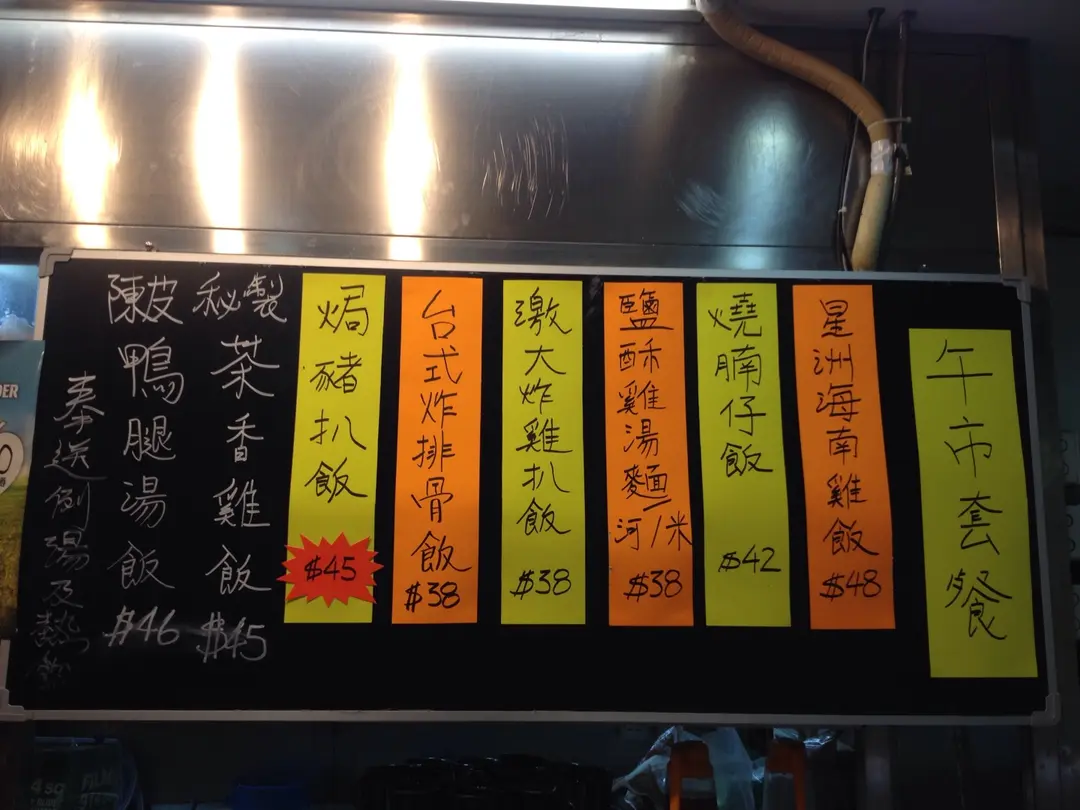 午市套餐
星洲海南雞飯
$48
燒腩仔飯
$42
鹽酥雞湯麵/
河/米
$38
激大炸雞扒飯
$38
台式炸排骨飯
$38
焗豬扒飯
$45
秘製茶香雞飯
$45
陳皮鴨腿湯飯
$46
奉送例湯及熱飲
DER